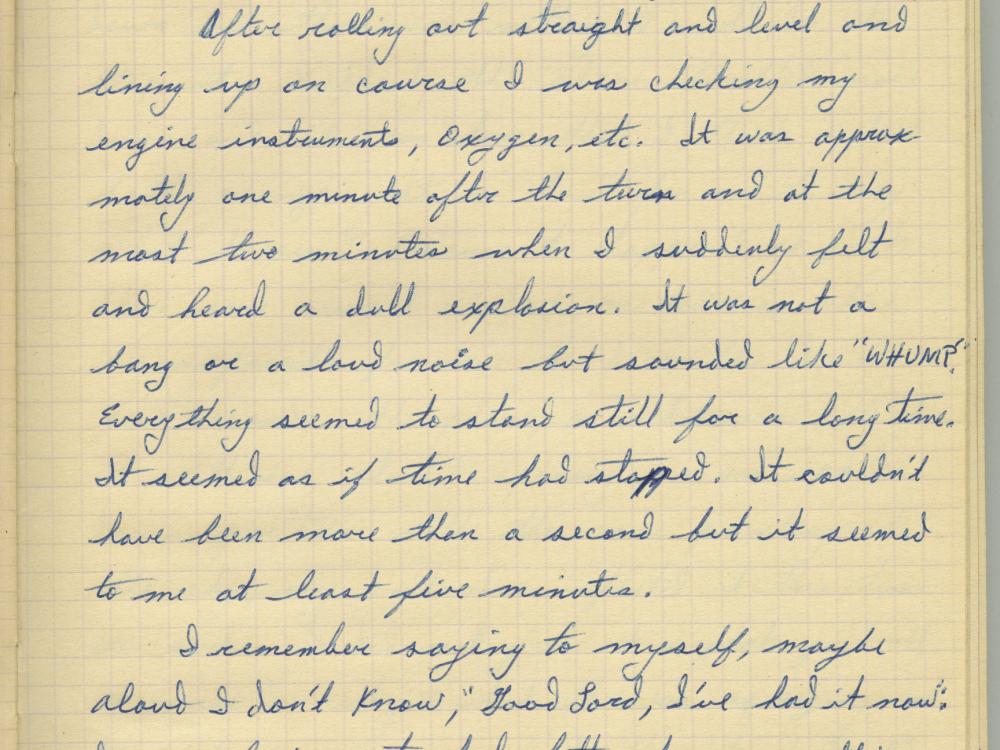 After rolling out straight and level and
lining up on course I was checking my
engine instruments, Oxygen, etc. It was approx-
mately one minute after the turn and at the
most two minutes when I suddenly felt
and heard a dull explosion. It was not a
bang or a loud noise but sounded like "WHUMP."
Everything seemed to stand still for a long time.
It seemed as if time had stopped. It couldn't
have been more than a second but it seemed
to me at least five minutes.
I remember saying to myself, maybe
aloud I don't know, "Good Lord, I've had it now".